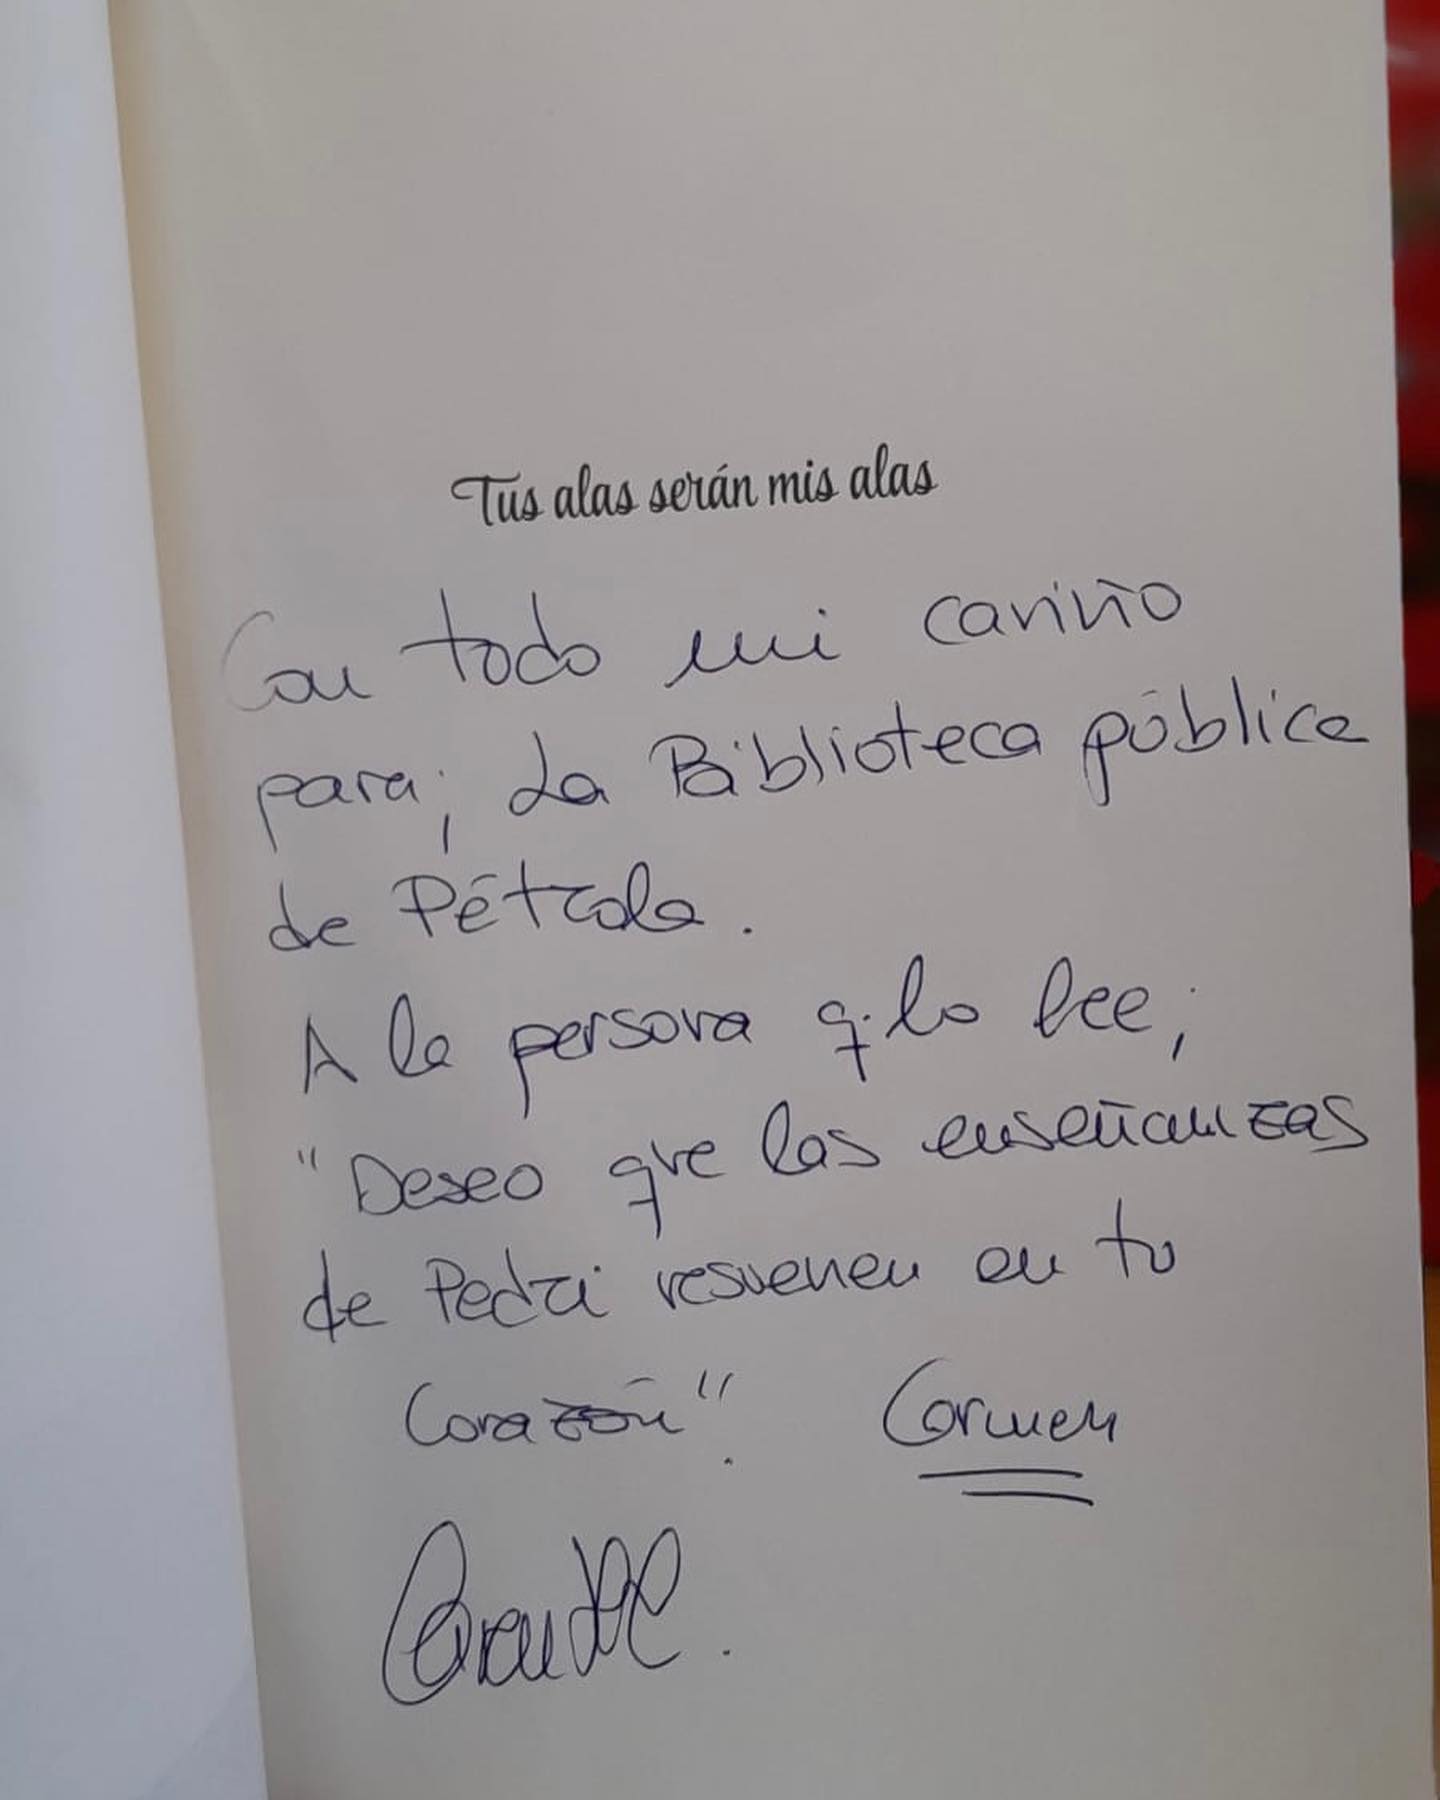 Tus alas serán mis alas
Con todo mi cariño
para; La Biblioteca pública
de Pétrola.
A la persona q. lo lee;
"Deseo que las enseñanzas
de Pedri resuenen en tu
Corazón". Carmen